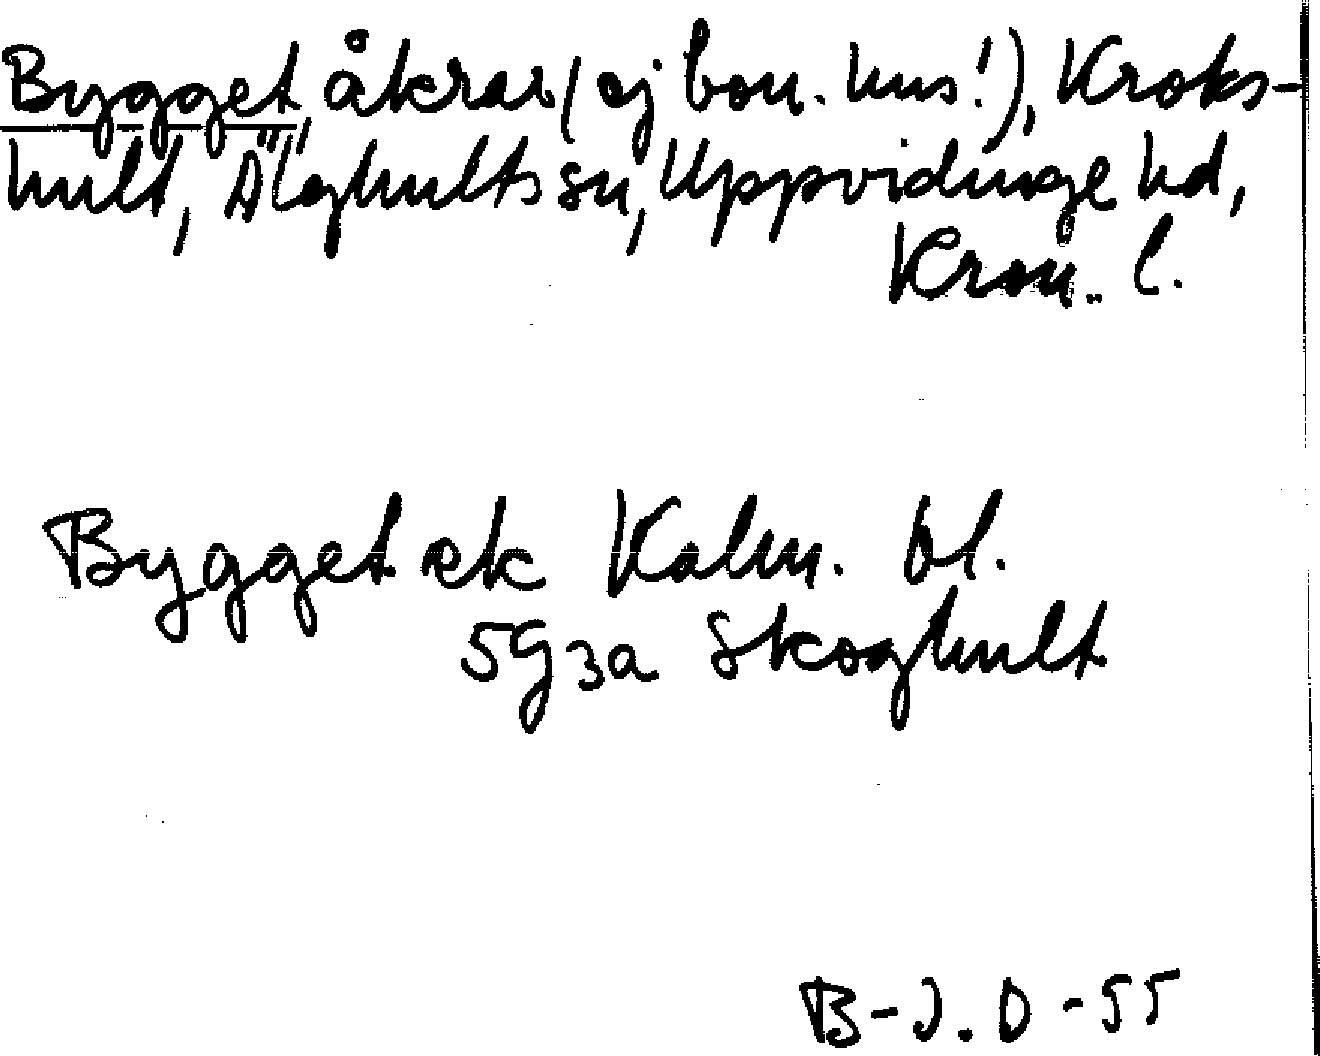 Bygget åkrar (ej bou. hus!), Kroks-
hult, Älghults sn, Uppvidinge hd,
Kron. l.
Bygget ek Kalm. bl.
5G3a Skoghult
B-J.O-55